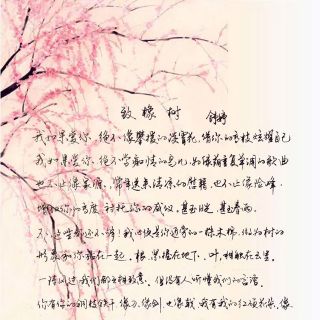 致橡树 舒婷
我如果爱你,绝不像攀援的凌霄花,借你的高枝炫耀自己
我如果爱你,绝不学痴情的鸟儿,为绿荫重复单调的歌曲
也不止像泉源,常年送来清凉的慰藉,也不止像险峰,
增加你的高度,衬托你的威仪。甚至日光,甚至春雨。
不,这些都还不够!我必须是你近旁的一株木棉,做为树的
形象和你站在一起。根,紧握在地下,叶,相触在云里。
一阵风过,我们都互相致意,但没有人听懂我们的言语。
你有你的铜枝铁干,像刀,像剑,也像戟,我有我的红硕花朵,像